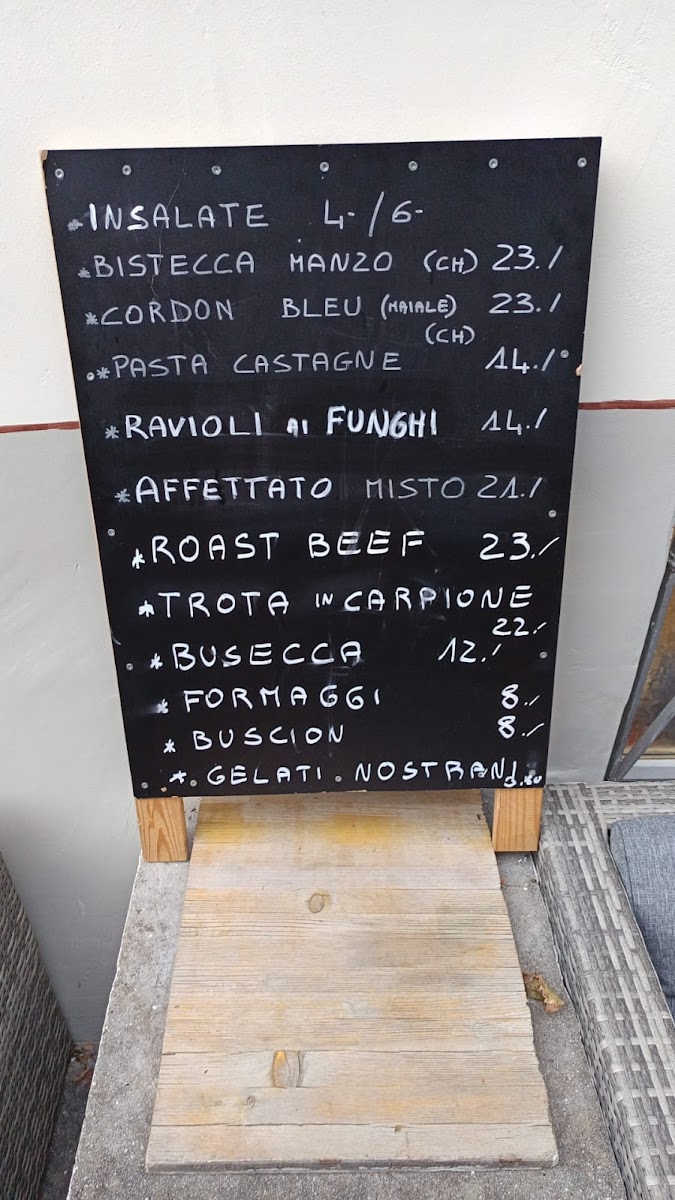 *INSALATE 4-/6-
*BISTECCA MANZO (CH) 23./
*CORDON BLEU (MAIALE) 23./
(CH)
*PASTA CASTAGNE 14./
*RAVIOLI AI FUNGHI 14./
*AFFETTATO MISTO 21./
*ROAST BEEF 23./
*TROTA IN CARPIONE
22./
*BUSECCA 12./
*FORMAGGI 8./
*BUSCION 8./
*GELATI NOSTRANI